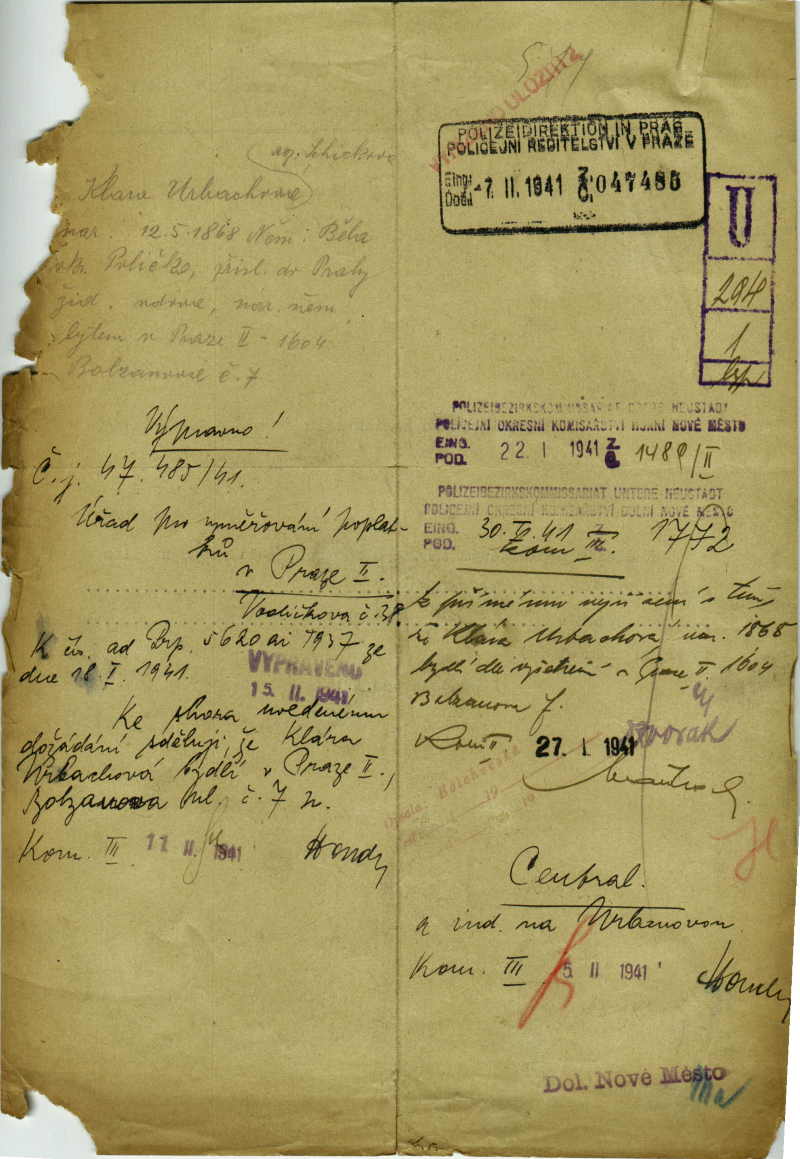 Klara Urbachova
nar. 12.5.1868 Něm. Bělá
okr. Polička, přísl. do Prahy
žid. vdova, nár. něm.
bytem v Praze II - 1604
Bolzanova č. 7
Výpravno!
Č. j. 47.485/41.
Úřad pro vyměřování poplat-
ků
v Praze II.
Vodičkova č. 38.
K čís. ad Drp. 5620 ai 1937 ze
dne 18. I. 1941.
VYPRAVENO
15. II. 1941
Ke shora uvedenému
dožádání sděluji, že Klára
Urbachová bydlí v Praze II.,
Bolzanova ul. č. 7 n.
Kom. III 11 II. 1941
POLIZEIDIREKTION IN PRAG
POLICEJNÍ ŘEDITELSTVÍ V PRAZE
Eing.
Došlo
-7. II. 1941
Z.
Č.
047485
U
294
1
POLIZEIBEZIRKSKOMMISSARIAT OBERE NEUSTADT
POLICEJNÍ OKRESNÍ KOMISAŘSTVÍ HORNÍ NOVÉ MĚSTO
EING.
POD.
22. I 1941
Z
Č
1489/II
POLIZEIBEZIRKSKOMMISSARIAT UNTERE NEUSTADT
POLICEJNÍ OKRESNÍ KOMISAŘSTVÍ DOLNÍ NOVÉ MĚSTO
EING.
POD.
30. 41
1772
kom III.
k přímému vyřízení s tím,
že Klára Urbachová nar. 1868
bydlí dle vyšetření v Praze II. 1604
Bolzanova 7.
Kom II 27. I 1941
Dvořák
Central.
a ind. na Urbanovou
Kom. III 5 II 1941
Dol. Nové Město